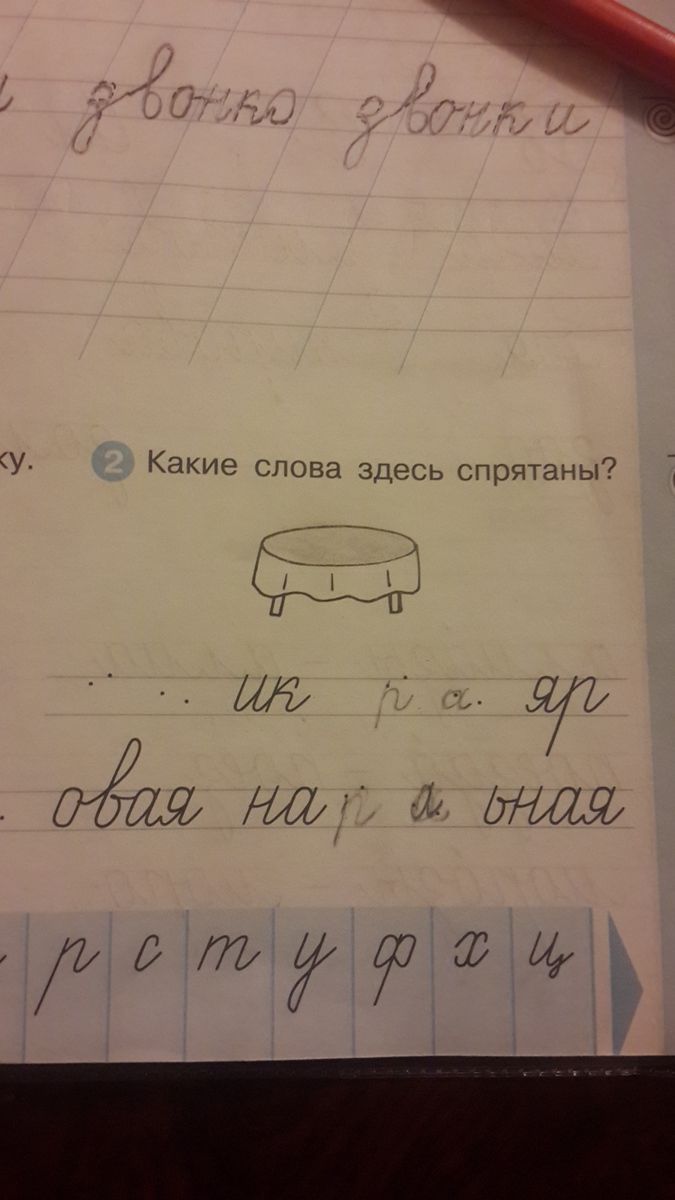 звонко звонки
ку. 2 Какие слова здесь спрятаны?
. . . . ик р а . яр
. овая на р а ьная
р с т у ф х ц